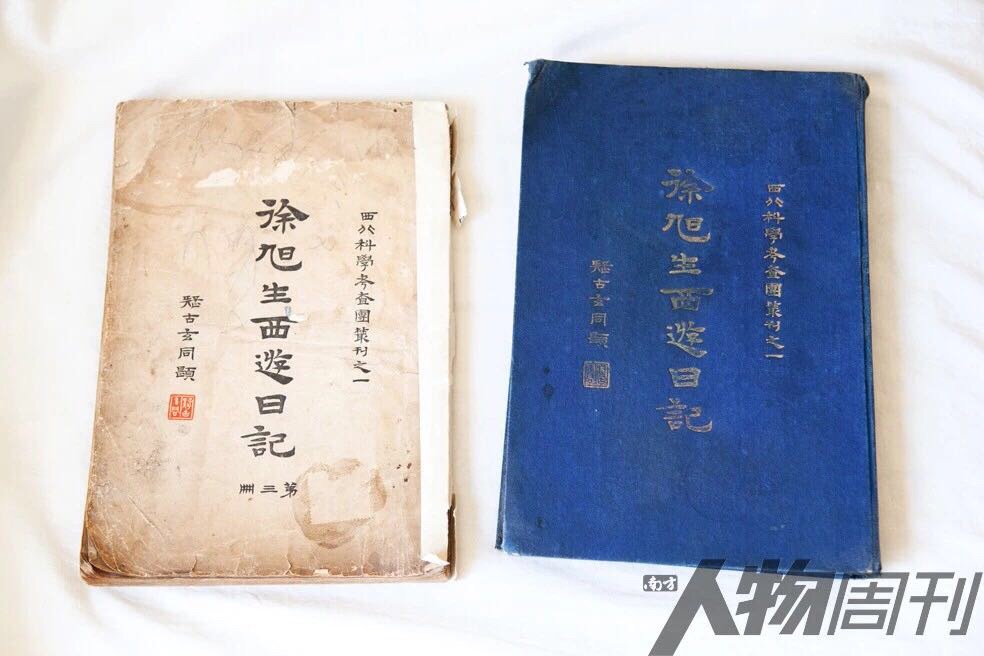 西北科學考查團叢刊之一
徐旭生西遊日記
疑古玄同題
第三冊
西北科學考查團叢刊之一
徐旭生西遊日記
疑古玄同題
南方
人物周刊